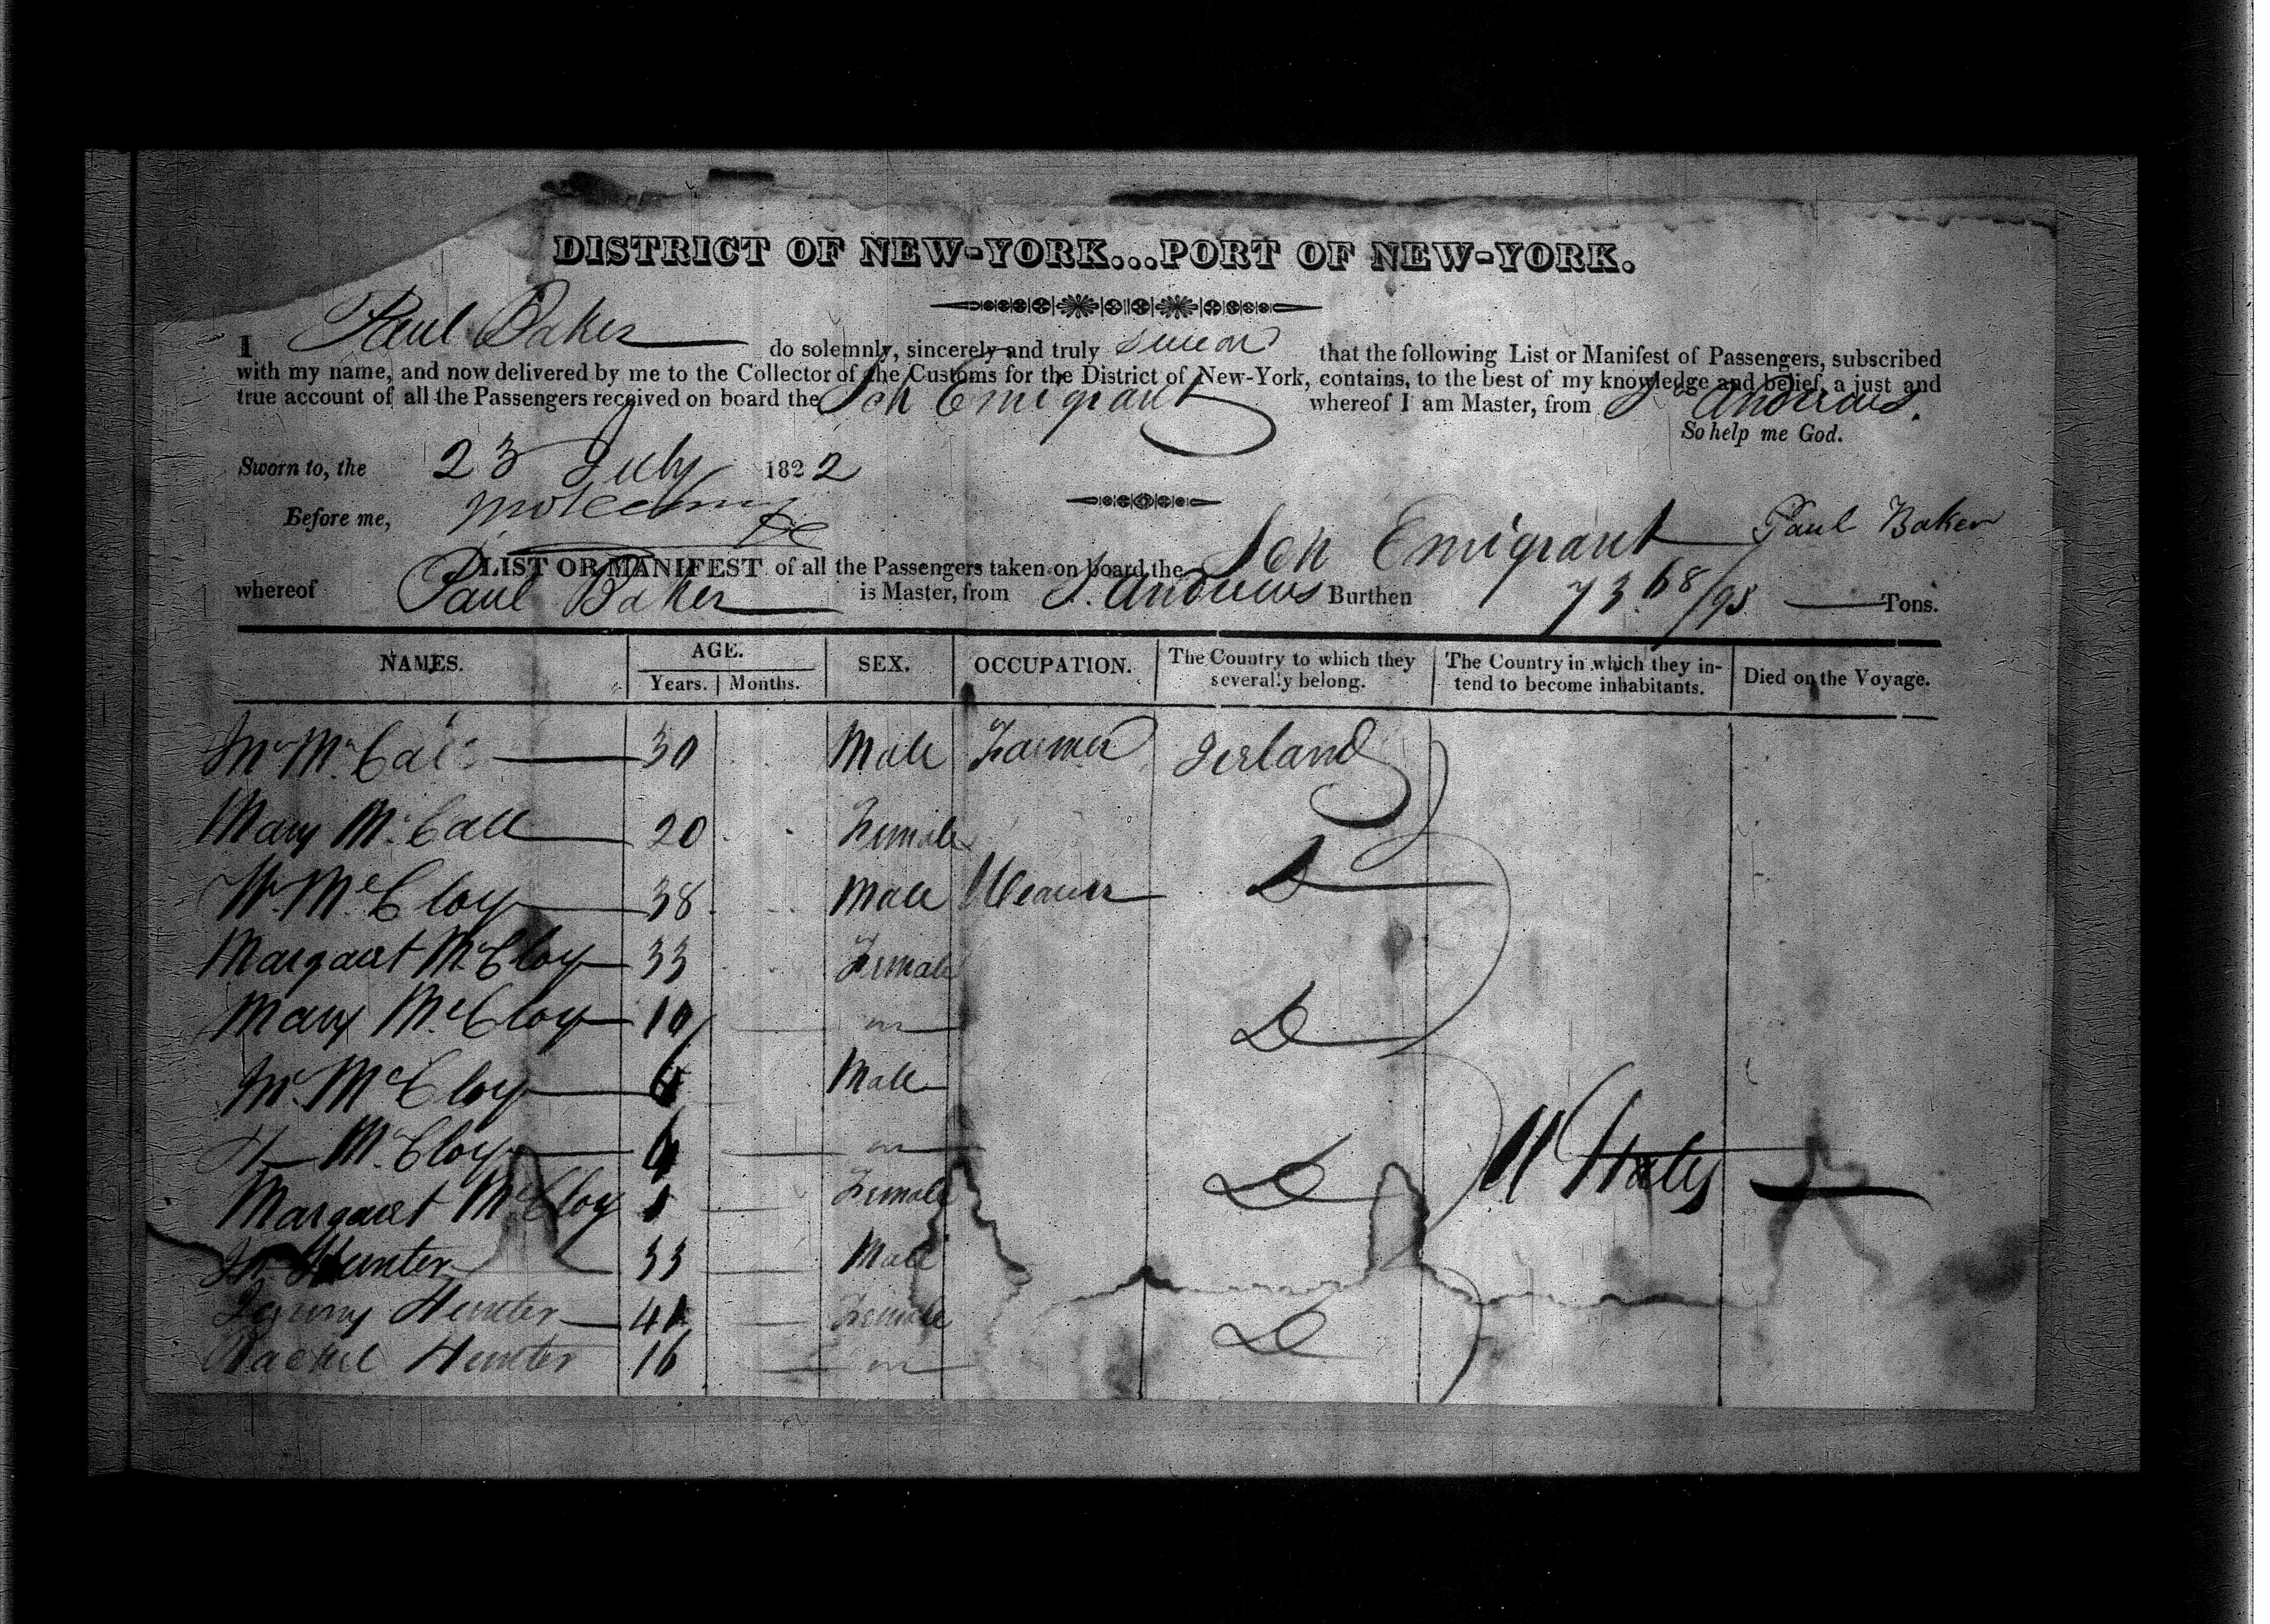 DISTRICT OF NEW-YORK...PORT OF NEW-YORK.
I Paul Baker do solemnly, sincerely and truly swear that the following List or Manifest of Passengers, subscribed
with my name, and now delivered by me to the Collector of the Customs for the District of New-York, contains, to the best of my knowledge and belief, a just and
true account of all the Passengers received on board the Sch Emigrant whereof I am Master, from St Andrews.
So help me God.
Sworn to, the 23 July 1822
Before me,
Paul Baker
LIST OR MANIFEST of all the Passengers taken on board the Sch Emigrant
whereof Paul Baker is Master, from St. Andrews Burthen 73.68/95 Tons.
NAMES. AGE. SEX. OCCUPATION. The Country to which they severally belong. The Country in which they intend to become inhabitants. Died on the Voyage.
Years. Months.
McCall 30 Male Farmer Ierland
Mary McCall 20 Female
Wm. McCloy 38 Male Weaver Do
Margaret McCloy 33 Female
Mary McCloy 10 Do
McCloy 6 Male
McCloy 4 U States
Margaret McCloy 1 Female Do
Hunter 33 Male
Jenny Hunter 41 Female Do
Rachel Hunter 16